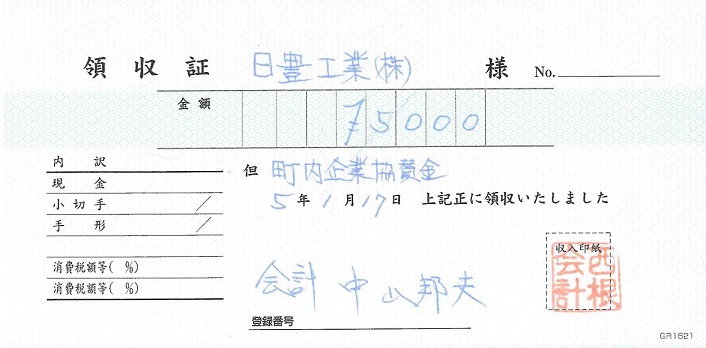 領収証 日豊工業(株) 様 No.
金額 ¥5000
内訳
現金
小切手 /
手形 /
消費税額等( %)
消費税額等( %)
但 町内企業協賛金
5年1月17日 上記正に領収いたしました
収入印紙
西根会計
会計 中山邦夫
登録番号
GR1621